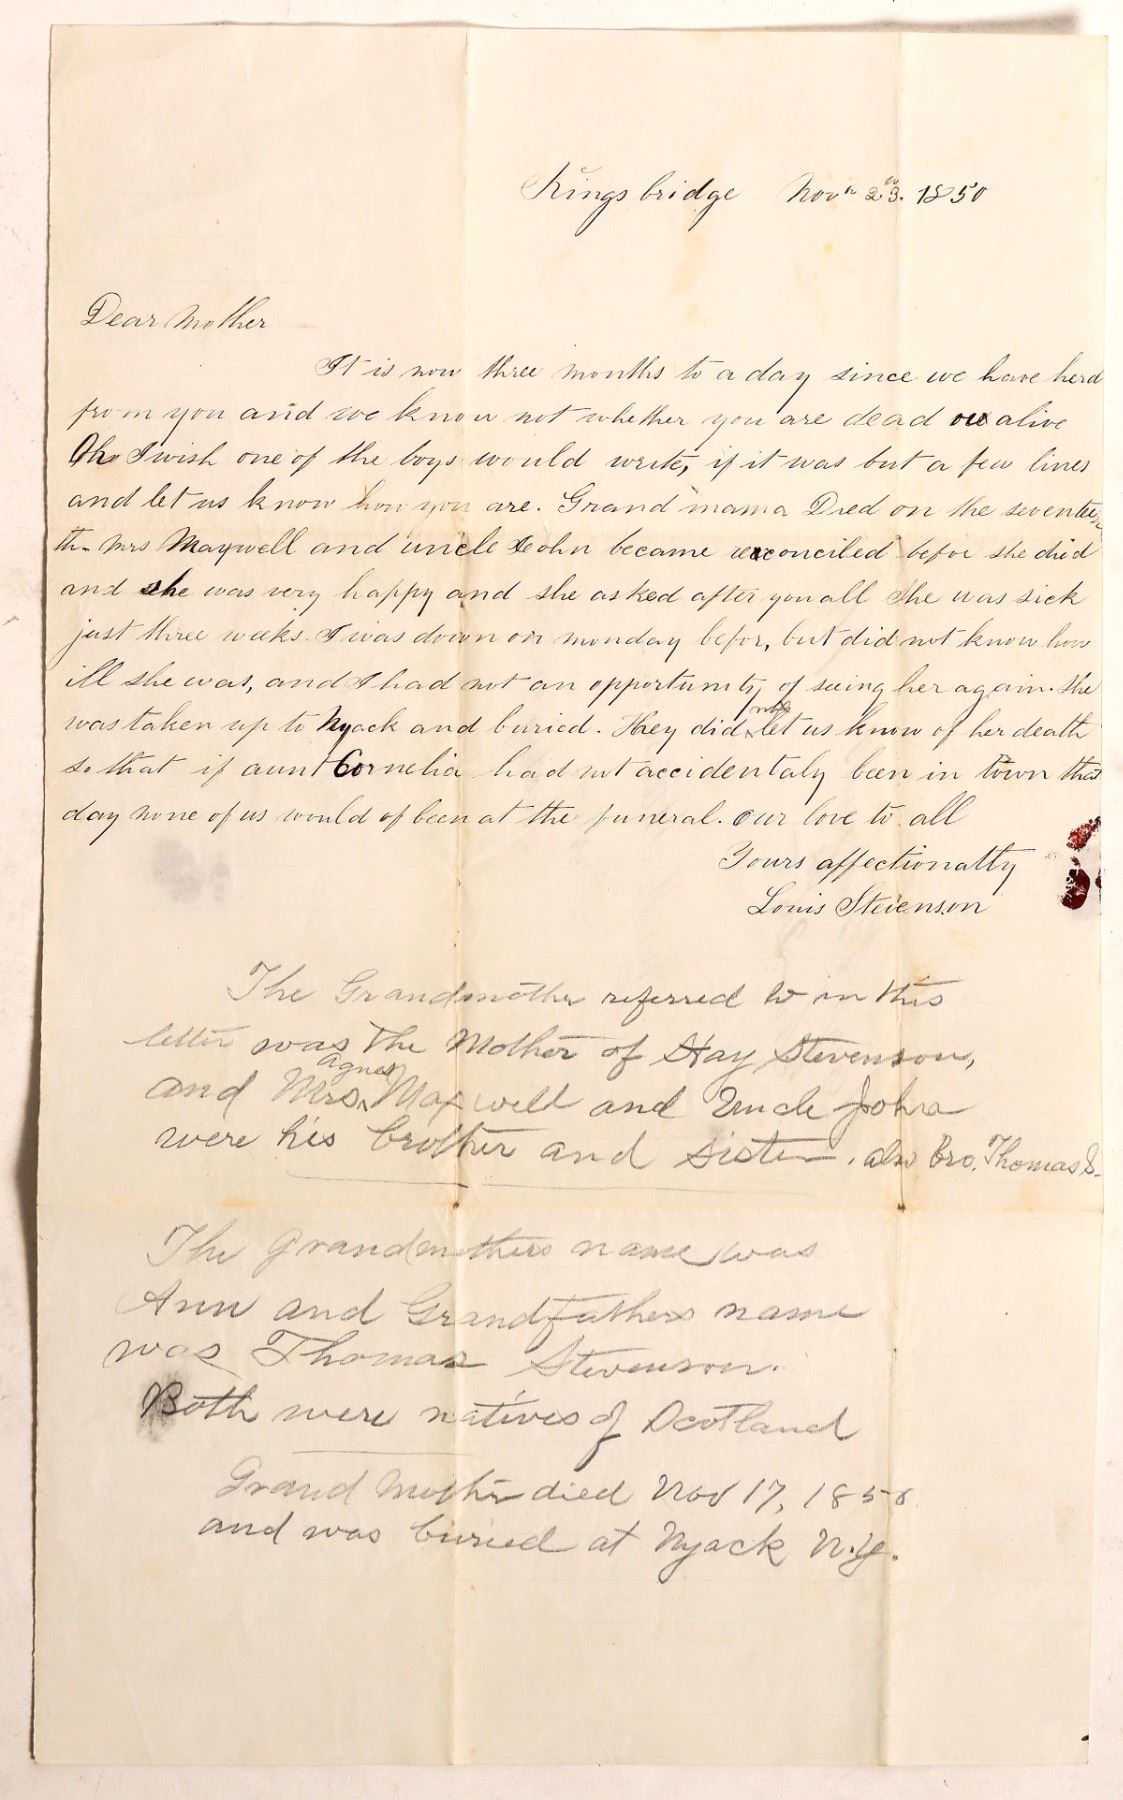 Kingsbridge Novr 23. 1850
Dear Mother
It is now three months to a day since we have herd
from you and we know not whether you are dead or alive
Oh I wish one of the boys would write, if it was but a few lines
and let us know how you are. Grand mama Died on the seventeen
th. Mrs Maywell and uncle John became reconciled befor she died
and she was very happy and she asked after you all She was sick
just three weeks. I was down on monday befor, but did not know how
ill she was, and I had not an opportunity of seeing her again. She
was taken up to Nyack and buried. They did not let us know of her death
so that if aunt Cornelia had not accidentaly been in town that
day none of us would of been at the funeral. our love to all
Yours affectionatty
Louis Stevenson
The Grandmother referred to in this
letter was the Mother of Hay Stevenson,
and Mrs. Agnes Maxwell and Uncle John
were his brother and sister. also Bro. Thomas S.
The Grandmothers name was
Ann and Grandfathers name
was Thomas Stevenson.
Both were natives of Scotland
Grand Mother died Nov 17, 1850
and was buried at Nyack N.Y.